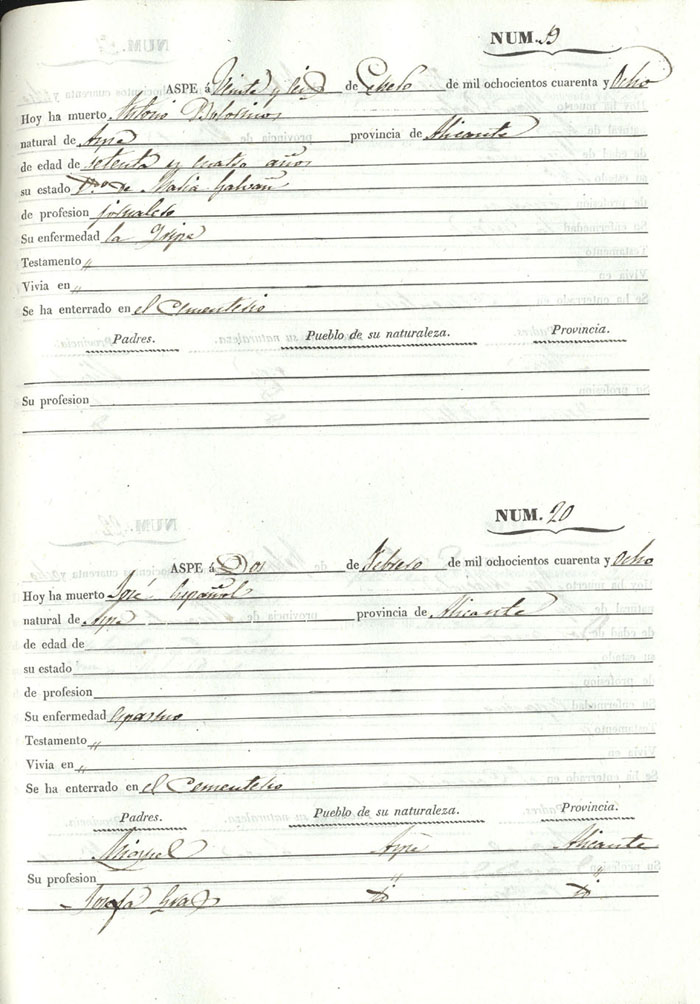 NUM. 19
ASPE á Veinte y seis de Enero de mil ochocientos cuarenta y Ocho
Hoy ha muerto Antonio
natural de Aspe provincia de Alicante
de edad de setenta y cuatro años
su estado de Maria Galvañ
de profesion jornalero
Su enfermedad la Gripe
Testamento "
Vivia en "
Se ha enterrado en el Cementerio
Padres. Pueblo de su naturaleza. Provincia.
Su profesion
NUM. 20
ASPE á Dos de Febrero de mil ochocientos cuarenta y Ocho
Hoy ha muerto José Español
natural de Aspe provincia de Alicante
de edad de
su estado
de profesion
Su enfermedad espasmo
Testamento "
Vivia en "
Se ha enterrado en el Cementerio
Padres. Pueblo de su naturaleza. Provincia.
Miguel Aspe Alicante
Su profesion " "
Josefa id id